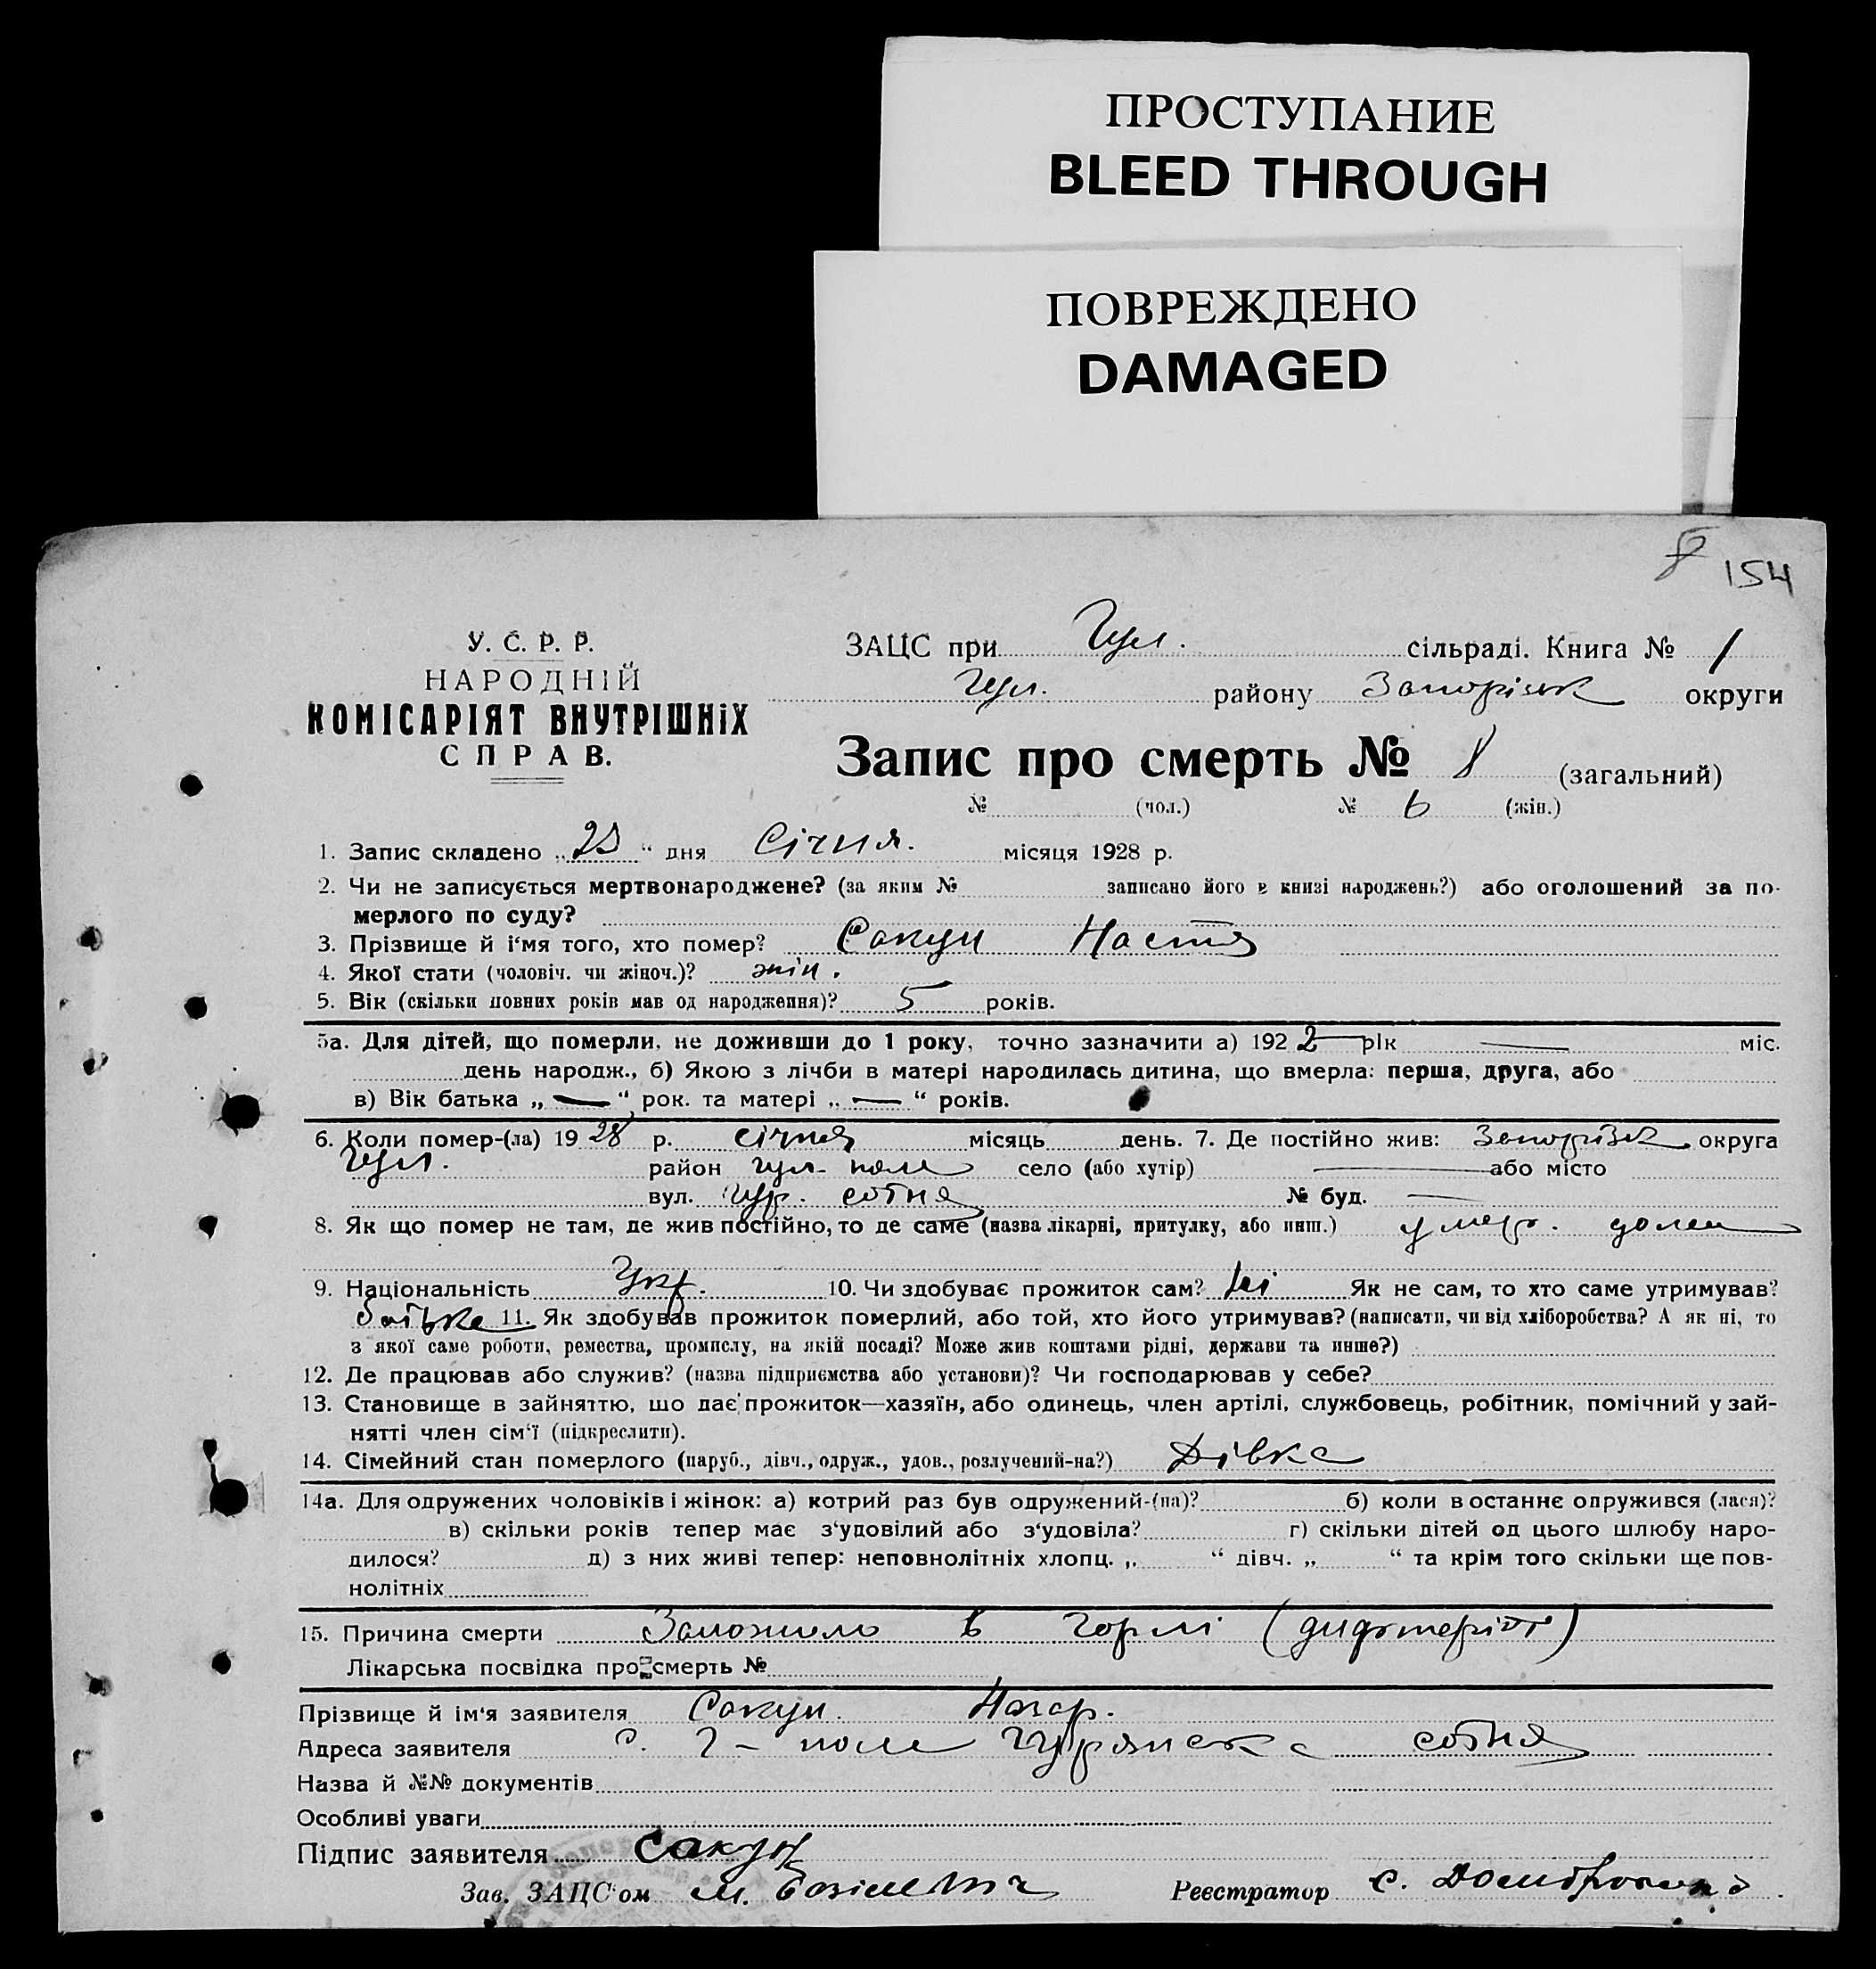 ПРОСТУПАНИЕ
BLEED THROUGH
ПОВРЕЖДЕНО
DAMAGED
154
У. С. Р. Р.
НАРОДНІЙ
КОМІСАРІЯТ ВНУТРІШНІХ
СПРАВ.
ЗАЦС при Гул. сільраді. Книга № 1
Гул. району Запорізьк округи
Запис про смерть № 8 (загальний)
№ (чол.) № 6 (жін.)
1. Запис складено „ “ дня Січня. місяця 1928 р.
2. Чи не записується мертвонароджене? (за яким № записано його в книзі народжень?) або оголошений за по-
мерлого по суду?
3. Прізвище й і‘мя того, хто помер? Сакун Настя
4. Якої стати (чоловіч. чи жіноч.)? жін.
5. Вік (скільки повних років мав од народження)? 5 років.
5а. Для дітей, що померли, не доживши до 1 року, точно зазначити а) 1922 рік — міс.
день народж., б) Якою з лічби в матері народилась дитина, що вмерла: перша, друга, або
в) Вік батька „ — “ рок. та матері „ — “ років.
6. Коли помер-(ла) 1928 р. січня місяць день. 7. Де постійно жив: Запорізьк округа
Гул. район Гул-поле село (або хутір) — або місто
вул. Гур. сотня № буд. —
8. Як що помер не там, де жив постійно, то де саме (назва лікарні, притулку, або инш.) умер. дома
9. Національність Укр. 10. Чи здобуває прожиток сам? Ні Як не сам, то хто саме утримував?
батько 11. Як здобував прожиток померлий, або той, хто його утримував? (написати, чи від хліборобства? А як ні, то
з якої саме роботи, ремества, промислу, на якій посаді? Може жив коштами рідні, держави та инше?)
12. Де працював або служив? (назва підприємства або установи)? Чи господарював у себе?
13. Становище в зайняттю, що дає прожиток—хазяїн, або одинець, член артілі, службовець, робітник, помічний у зай-
нятті член сім‘ї (підкреслити).
14. Сімейний стан померлого (паруб., дівч., одруж., удов., розлучений-на?) Дівка
14а. Для одружених чоловіків і жінок: а) котрий раз був одружений-(на)? б) коли востаннє одружився (лася)?
в) скільки років тепер має з‘удовілий або з‘удовіла? г) скільки дітей од цього шлюбу наро-
дилося? д) з них живі тепер: неповнолітніх хлопц. „ “ дівч. „ “ та крім того скільки ще пов-
нолітніх
15. Причина смерти Заложило в горлі (дифтеріт)
Лікарська посвідка про смерть №
Прізвище й ім‘я заявителя Сакун. Назар.
Адреса заявителя с. Г-поле Гурянська сотня
Назва й №№ документів
Особливі уваги
Підпис заявителя Сакун
Зав. ЗАЦС‘ом М.
Реєстратор С.